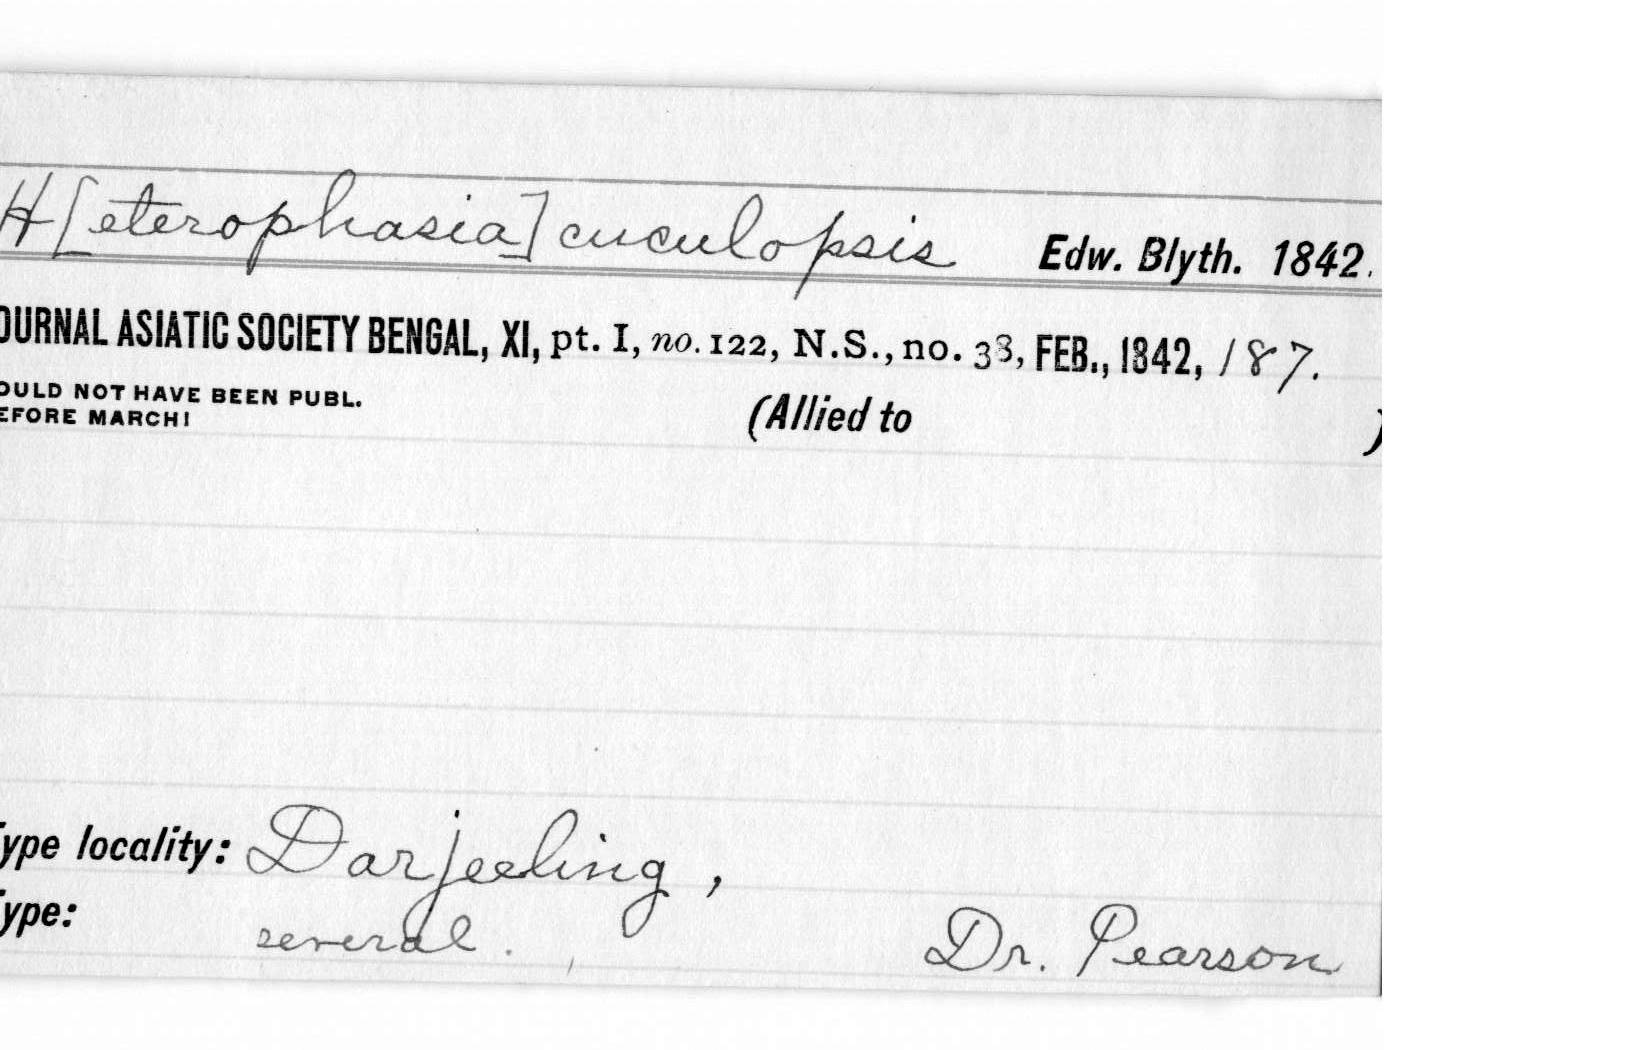 H[eterophasia] cuculopsis Edw. Blyth. 1842.
OURNAL ASIATIC SOCIETY BENGAL, XI, pt. I, no. 122, N.S., no. 38, FEB., 1842, 187.
OULD NOT HAVE BEEN PUBL.
EFORE MARCH!
(Allied to )
ype locality: Darjeeling,
ype: several. Dr. Pearson